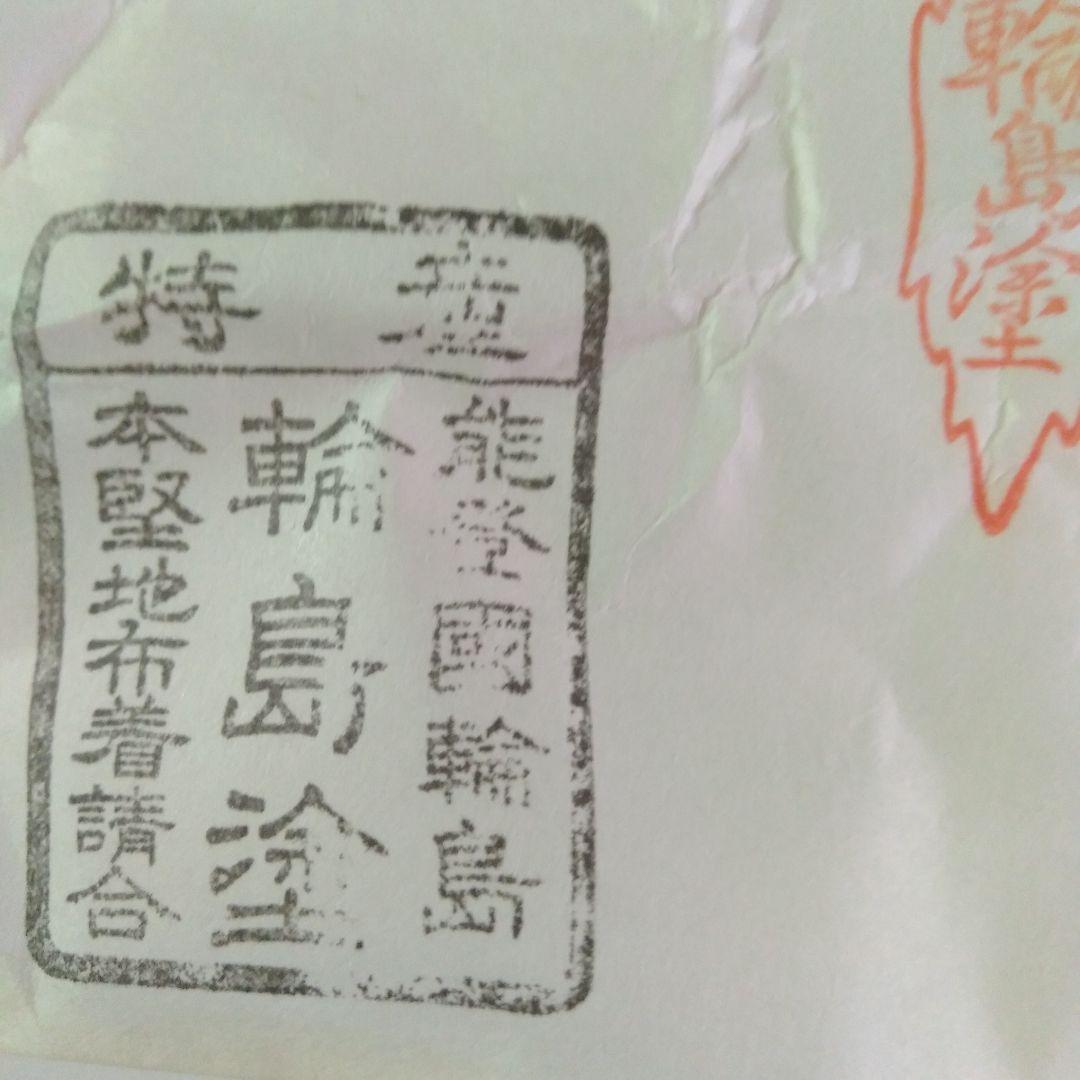 輪島塗
特産
能登國輪島
輪島塗
本堅地布着請合